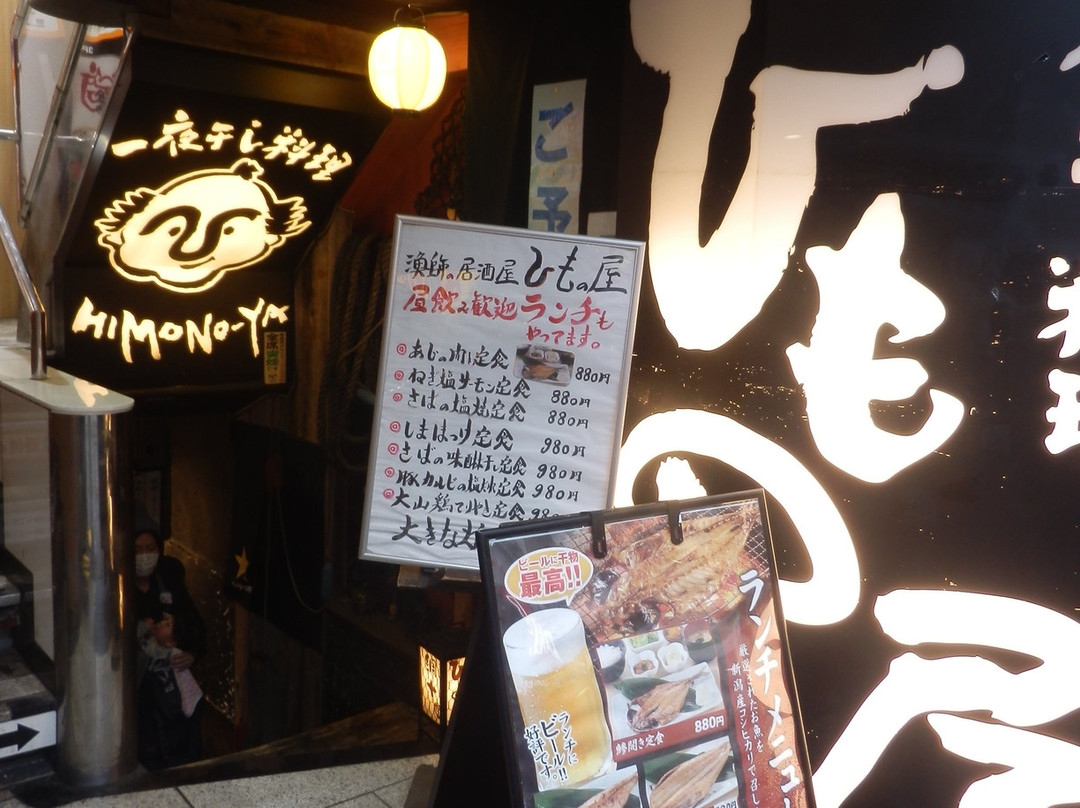 一夜干し料理
HIMONO-YA
ご予
漁師の居酒屋 ひもの屋
昼飲み歓迎 ランチも
やってます。
あじの開き定食 880円
ねぎ塩サーモン定食 880円
さばの塩焼定食 880円
しまほっけ定食 980円
さばの味醂干し定食 980円
豚カルビの塩焼定食 980円
大山鶏てりやき定食 980
大きな
ビールに干物
最高!!
ランチに
ビール!!
好評です。
ランチメニュー
厳選されたお魚を
新潟産コシヒカリで召し
鯵開き定食 880円
ひもの屋
料理